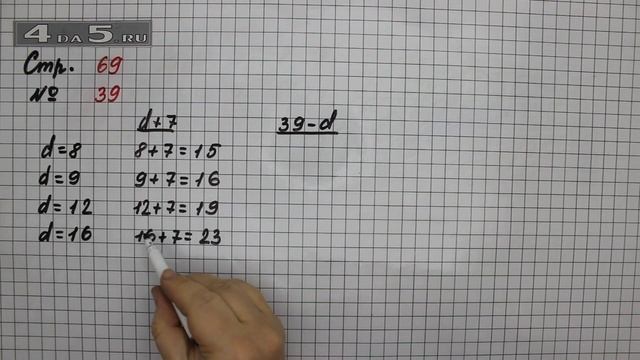 4DA5.RU
Стр. 69
№ 39
d+7 39-d
d=8 8+7=15
d=9 9+7=16
d=12 12+7=19
d=16 16+7=23